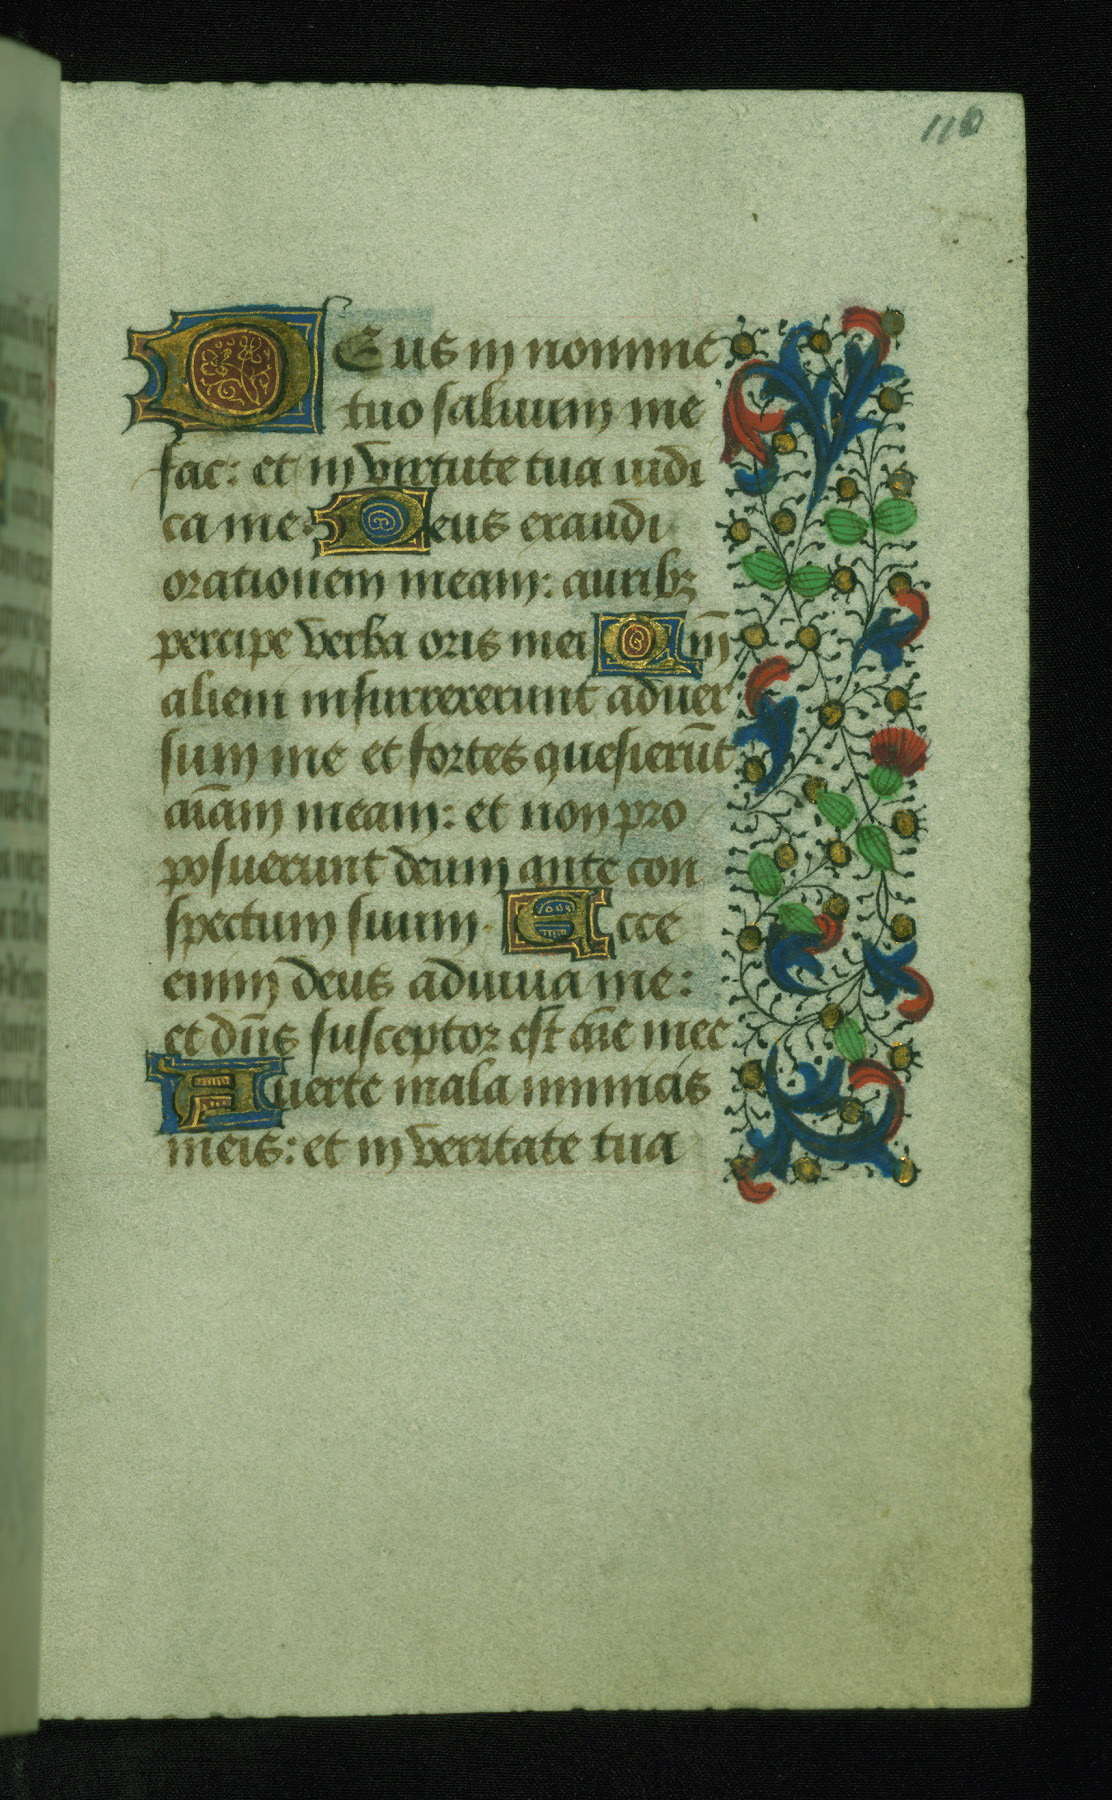 110
Deus in nomine
tuo saluum me
fac: et in virtute tua iudi
ca me. Deus exaudi
orationem meam: auribꝫ
percipe verba oris mei Qm̄
alieni insurrexerunt aduer
sum me et fortes quesierūt
aīam meam: et non pro
posuerunt deum ante con
spectum suum. Ecce
enim deus adiuua me:
et dn̄s susceptor est aīe mee
Auerte mala inimicis
meis: et in veritate tua